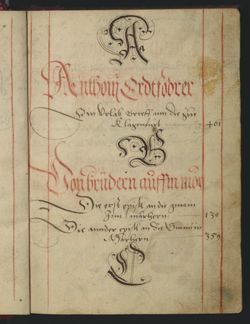 A
Anthonj Erdtfordrer
Ein Trostbrieff ann die zue
Klagenfurt 461
B
Von brüdern auffm mör
Die erst epistl an die gmain
Zum märhern 130
Die annder epistl an die Gmain in
Märhern 359
C